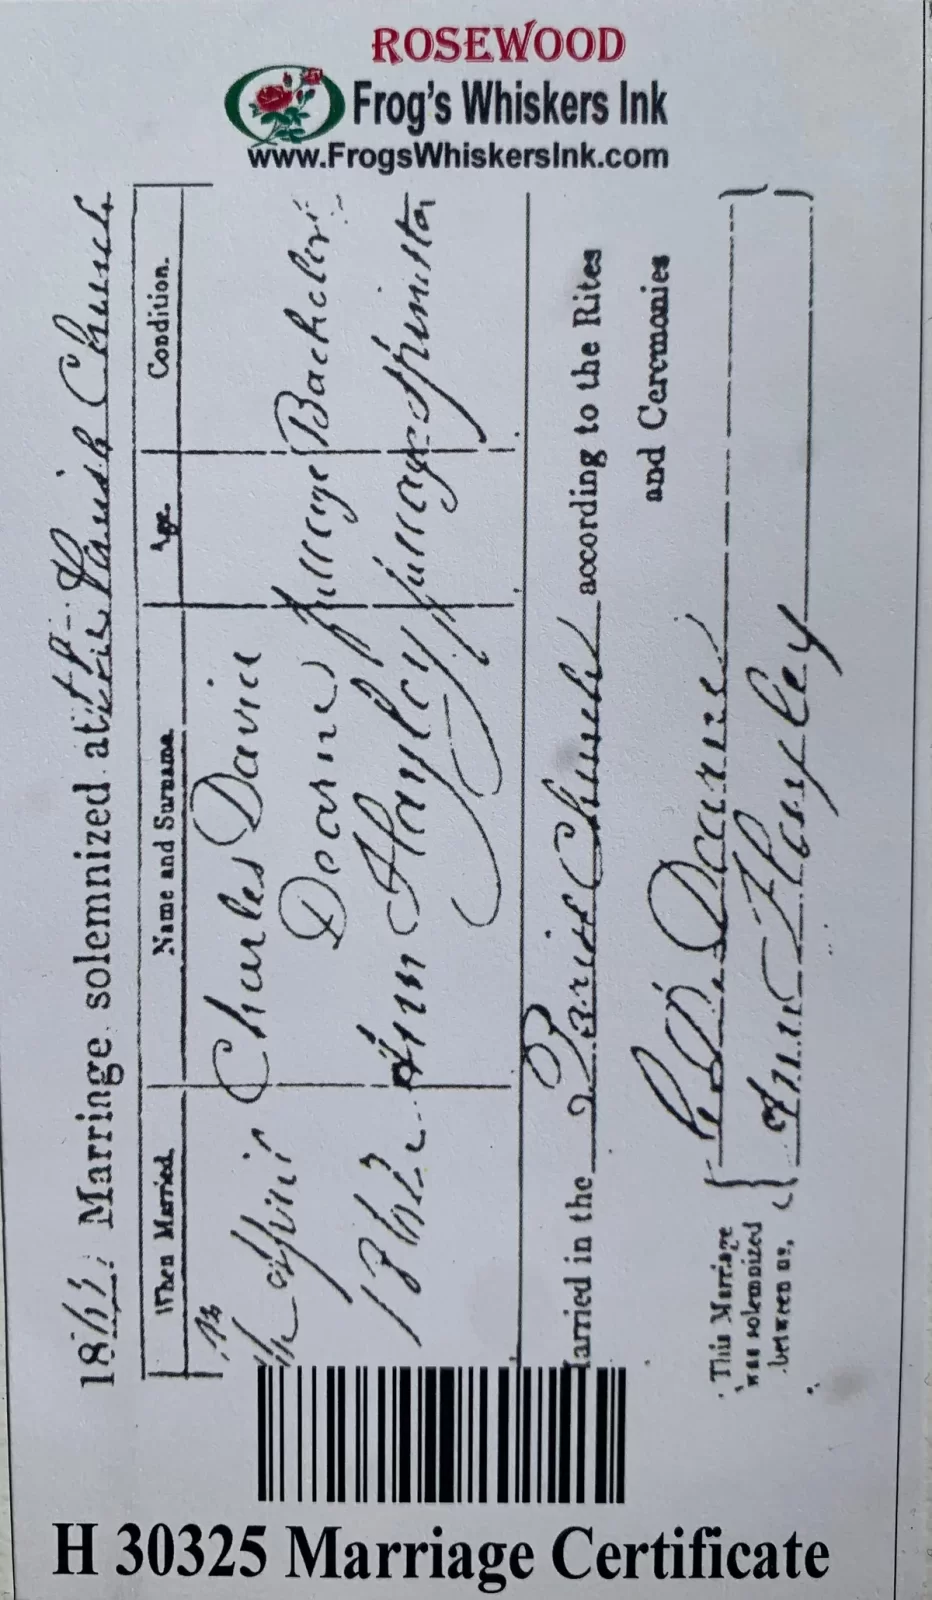 ROSEWOOD
Frog's Whiskers Ink
www.FrogsWhiskersInk.com
Marriage solemnized at the Parish Church
When Married.
Name and Surname.
Age.
Condition.
Charles David
Dearne
full age
Bachelor
1862
Ann Hayley
full age
Spinster
arried in the Parish Church according to the Rites
and Ceremonies
This Marriage
was solemnized
between us,
C. D. Dearne
Ann Hayley
H 30325 Marriage Certificate